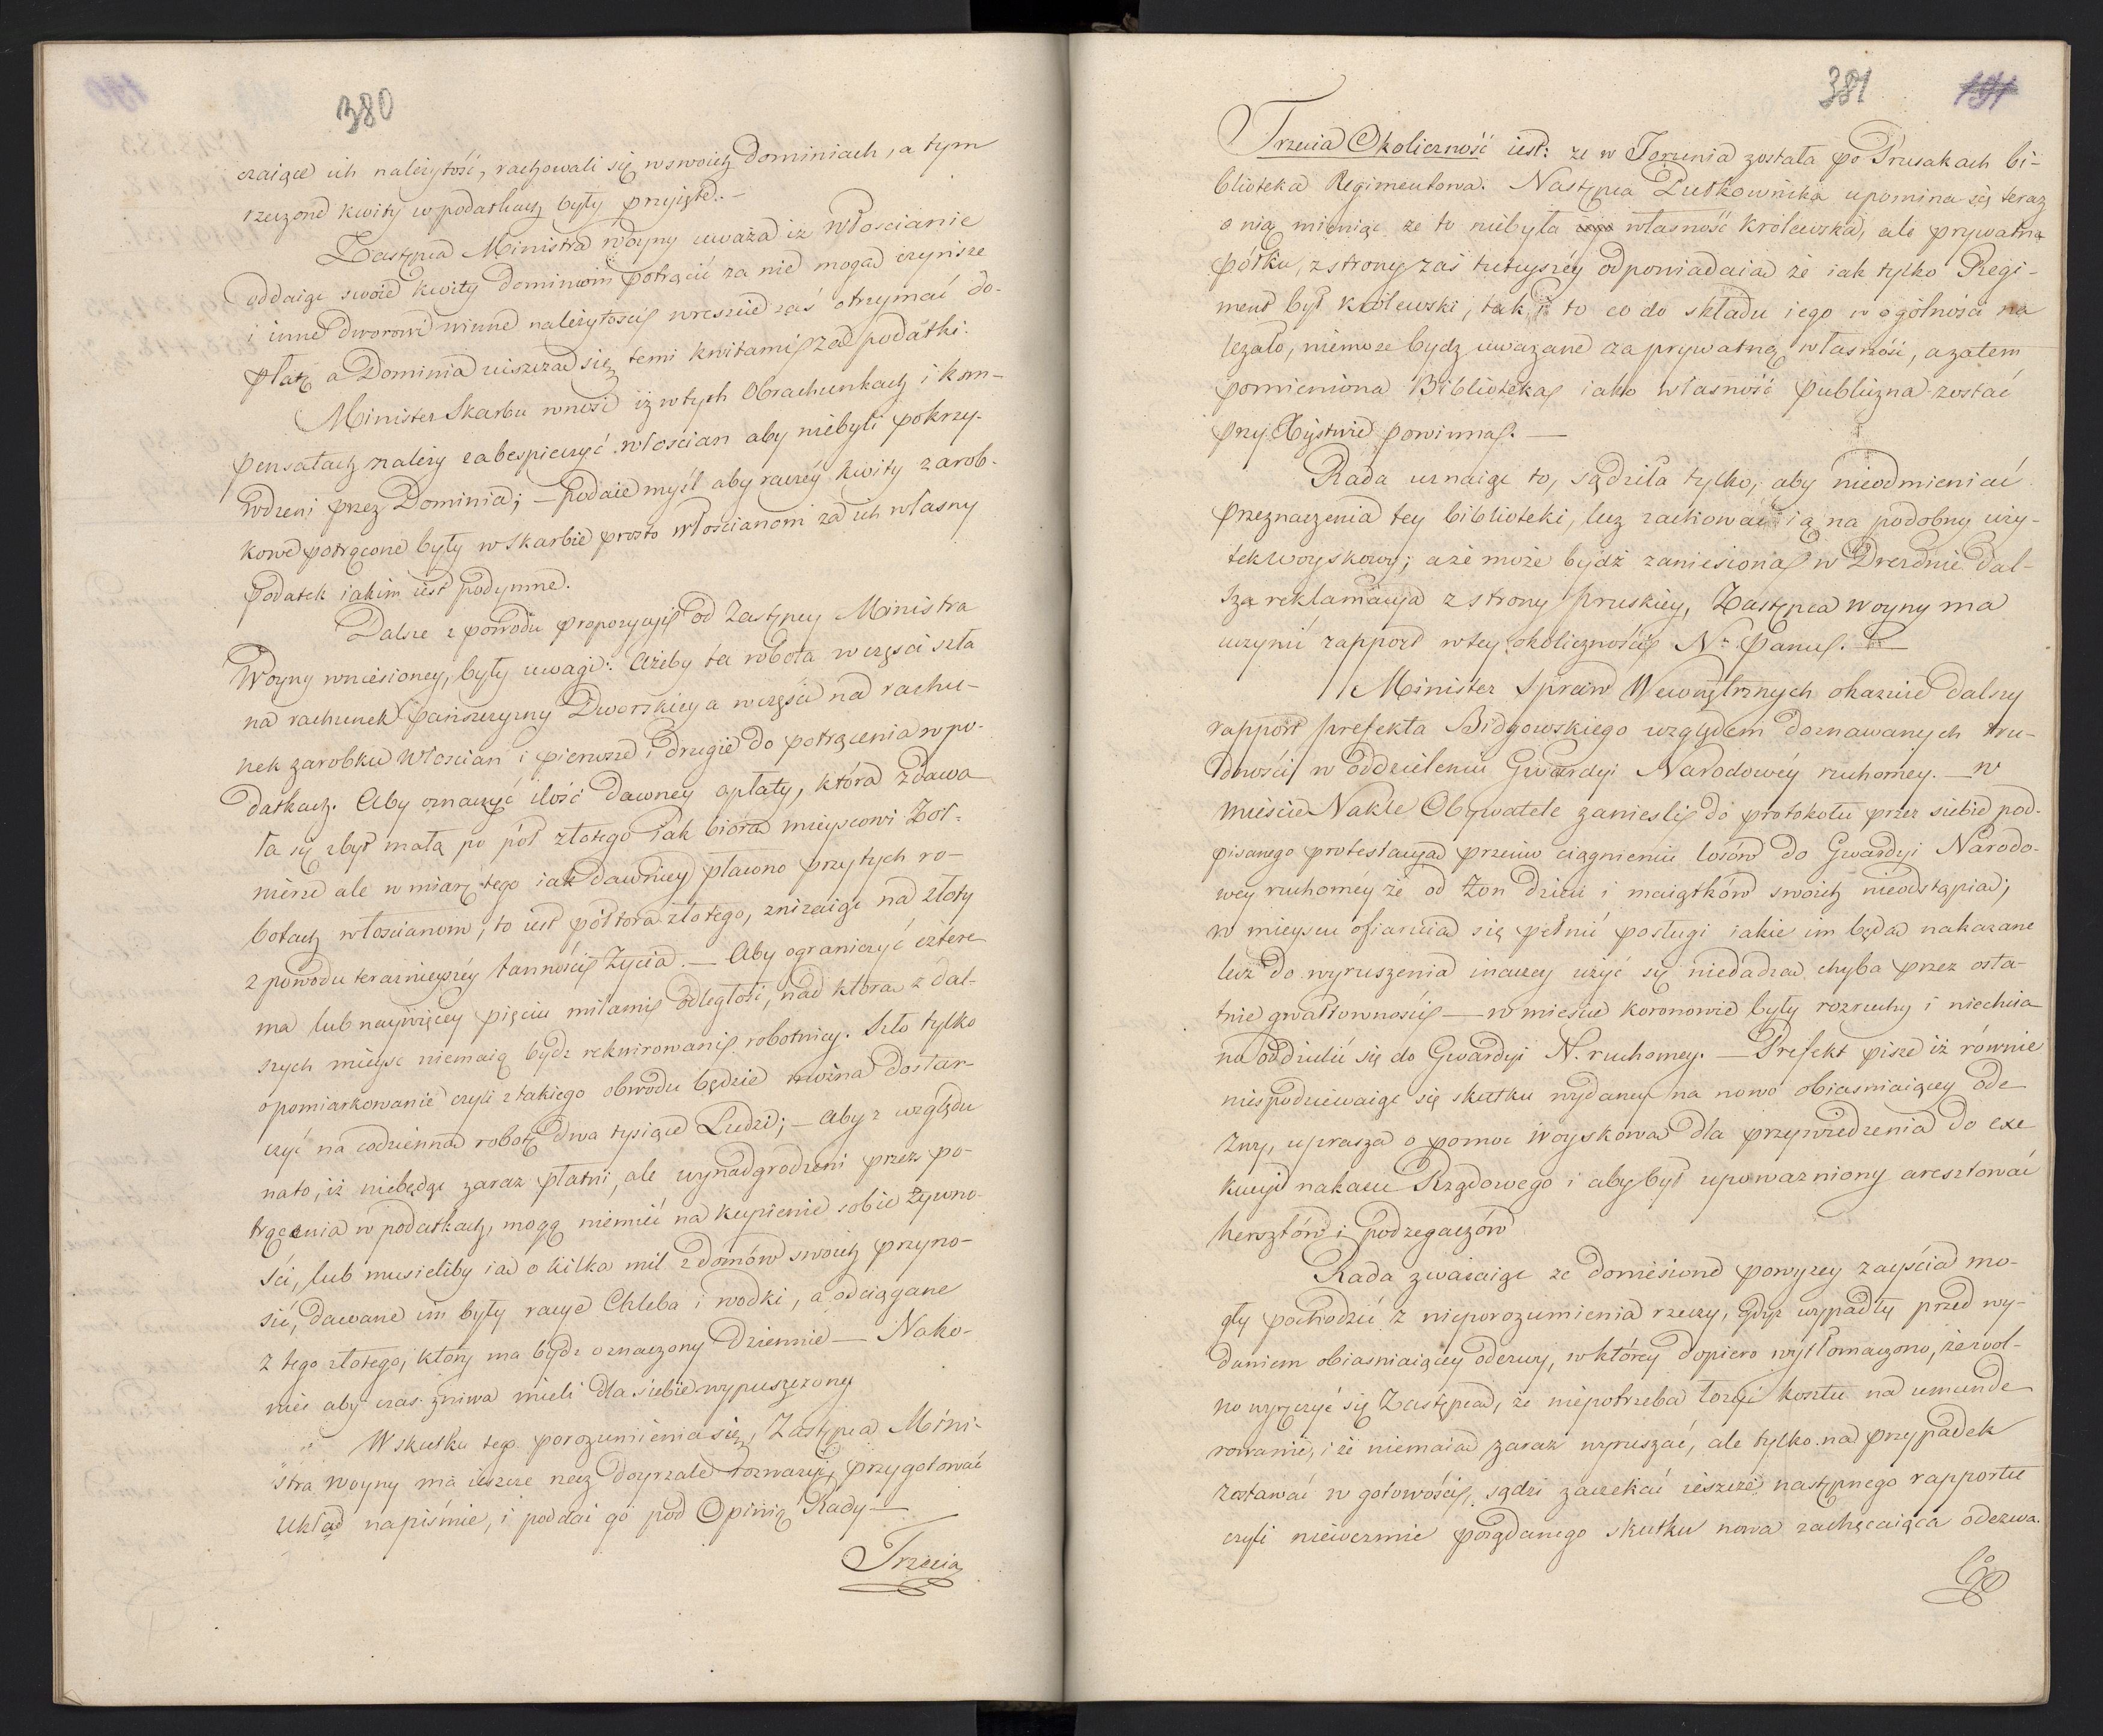 380
czaiące ich należytość, rachowali się w swoich Dominiach, a tym
rzeczone kwity w podatkach były przyięte. -
Zastępca Ministra Woyny uważa iż Włoscianie
oddaiąc swoie kwity Dominiom potrącić za nie mogą czynsze
i inne dworowi winne należytości wreszcie zaś otrzymać do-
płatę a Dominia uiszczać się temi kwitami za podatki.
Minister Skarbu wnosi iż w tych Obrachunkach i kom-
pensatach należy zabespieczyć włoscian aby niebyli pokrzy-
wdzeni przez Dominia; - podaie myśl aby raczéy kwity zarob-
kowe potrącone były w skarbie prosto włoscianom za ich własny
podatek iakim iest podymne.
Dalsze z powodu propozycyi od Zastępcy Ministra
Woyny wniesioney, były uwagi: Ażeby ta robota w części szła
na rachunek pańszczyzny Dworskiey a w części na rachu-
nek zarobku Włoscian i pierwsze i drugie do potrącenia w po-
datkach. Aby oznaczyć ilość dawney opłaty, która zdawa
ła się zbyt mała po pół złotego iak biorą mieyscowi Żoł-
nierze ale w miarę tego iak dawniey płacono przy tych ro-
botach włoscianom, to iest półtora złotego, zniżaiąc na złoty
z powodu teraznieyszéy tanności życia. - Aby ograniczyć cztere
ma lub naywięcey pięciu milami odległość, nad którą z dal-
szych mieysc niemaią bydz rekwirowani robotnicy. Szło tylko
o pomiarkowanie czyli z takiego obwodu będzie można dostar-
czyć na codzienną robotę dwa tysiące Ludzi; - Aby z względu
na to, iż niebędąc zaraz płatni, ale wynadgrodzeni przez po-
trącenia w podatkach, mogą niemieć na kupienie sobie żywno-
ści, lub musieliby ią o kilka mil z domów swoich przyno-
sić, dawane im były racye Chleba i wodki, a odciągane
z tego złotego, który ma bydz oznaczony dziennie - Nako-
niec aby czas żniwa mieli dla siebie wypuszczony
W skutku tego porozumienia się, Zastępca Mini-
stra Woyny ma ieszcze rzecz doyrzale rozważyć, przygotować
Układ na piśmie, i poddać go pod Opinię Rady -
Trzecia
381 191
Trzecia Okoliczność iest: że w Toruniu została po Prusakach bi-
blioteka Regimentowa. Następca Pułkownika upomina się teraz
o nią mieniąc że to niebyła własność Królewska, ale prywatna
półku, z strony zaś tuteyszéy odpowiadaią że iak tylko Regi-
ment był królewski, tak i to co do składu iego w ogólności na
leżało, niemoże bydz uważane za prywatną własność, a zatem
pomieniona Biblioteka iako własność publiczna zostać
przy Xięstwie powinna. -
Rada uznaiąc to, sądziła tylko, aby nieodmieniać
przeznaczenia tey biblioteki, lecz zachować ią na podobny uży-
tek woyskowy; a że może bydź zaniesiona w Dreznie dal-
sza reklamacya z strony pruskiey, Zastępca woyny ma
uczynić rapport w tey okoliczności Nr. Panu. -
Minister Spraw Wewnętrznych okazuie dalszy
rapport prefekta Bidgowskiego względem doznawanych tru-
dności w oddzieleniu Gwardyi Narodowéy ruchomey. - w
mieście Nakle Obywatele zanieśli do protokołu przez siebie pod-
pisanego protestacyą przeciw ciągnieniu losów do Gwardyi Narodo-
wey ruchoméy że od żon dzieci i maiątków swoich nieodstąpią;
w mieyscu ofiaruią się pełnić posługi iakie im będą nakazane
lecz do wyruszenia inaczey użyć się niedadzą chyba przez osta-
tnie gwałtowności - w mieście Koronowie były rozruchy i niechcia
no oddzielić się do Gwardyi N. ruchomey. - Prefekt pisze iż równie
niespodziewaiąc się skutku wydaney na nowo obiasniaiącey ode
zwy, uprasza o pomoc woyskową dla przywiedzenia do exe
kucyi nakazu Rządowego i aby był upoważniony aresztować
hersztów i podżegaczów
Rada zważaiąc że doniesione powyżey zayścia mo-
gły pochodzić z nieporozumienia rzeczy, gdyż wypadły przed wy-
daniem obiasniaiącey odezwy, w którey dopiero wytłomaczono, że wol-
no wyręczyć się Zastępcą, że niepotrzeba łożyć kosztu na umunde
rowanie, i że niemaią zaraz wyruszać, ale tylko na przypadek
zostawać w gotowości, sądzi zaczekać ieszcze następnego rapportu
czyli nieweźmie pożądanego skutku nowa zachęcaiąca odezwa.